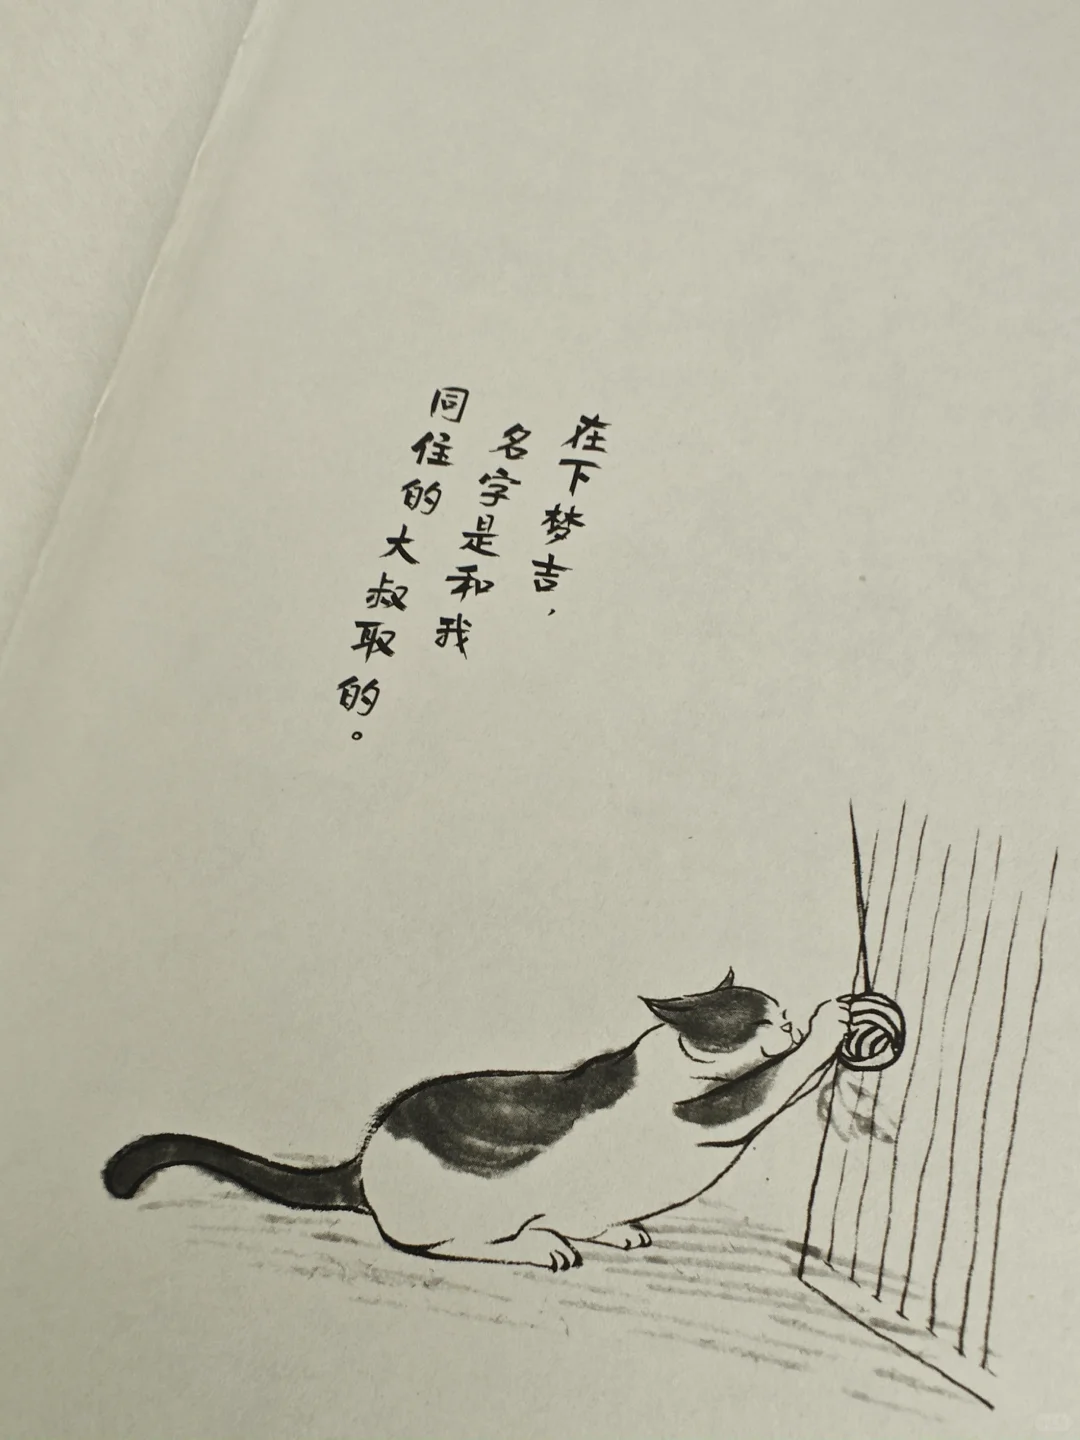 在下梦吉，
名字是和我
同住的大叔取的。